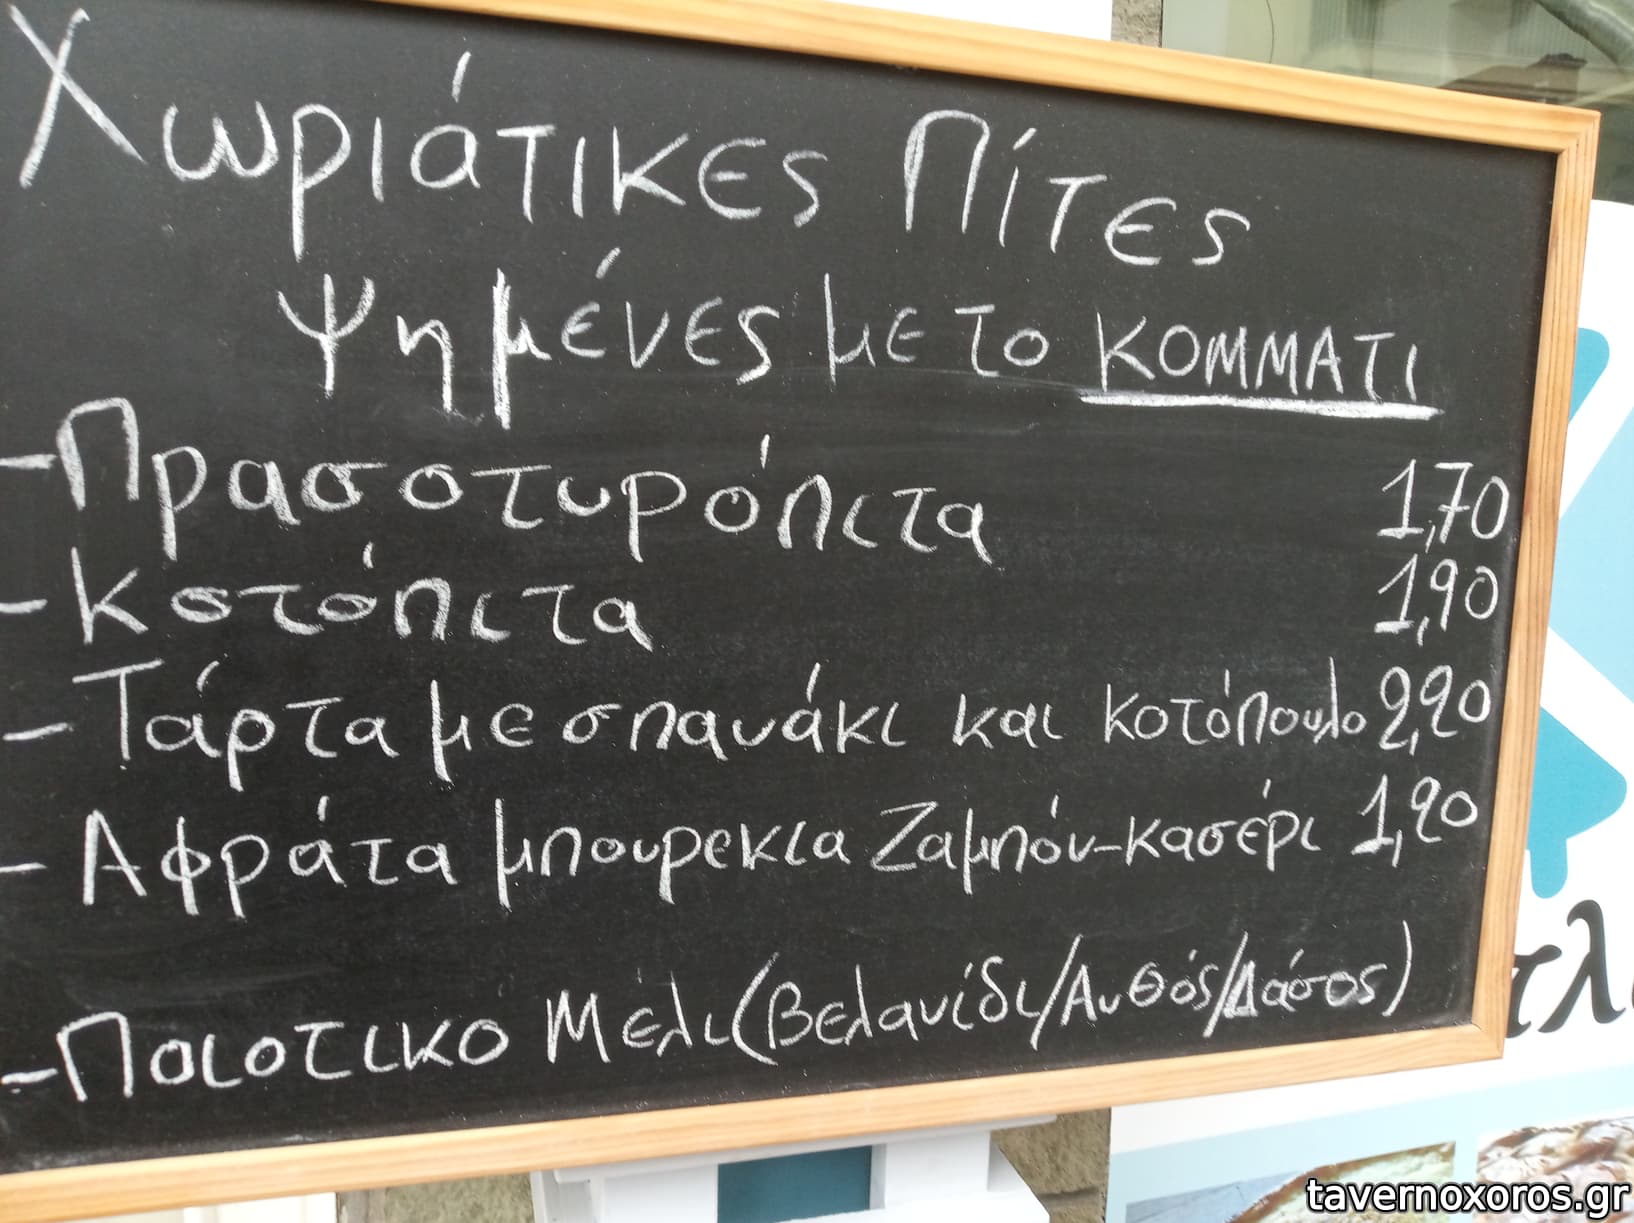 Χωριάτικες Πίτες
Ψημένες με το ΚΟΜΜΑΤΙ
-Πρασοτυρόπιτα 1,70
-Κοτόπιτα 1,90
-Τάρτα με σπανάκι και κοτόπουλο 2,20
-Αφράτα μπουρεκια Ζαμπόν-κασέρι 1,20
-Ποιοτικό Μέλι (Βελανίδι/Ανθός/Δάσος)
τλ
tavernoxoros.gr